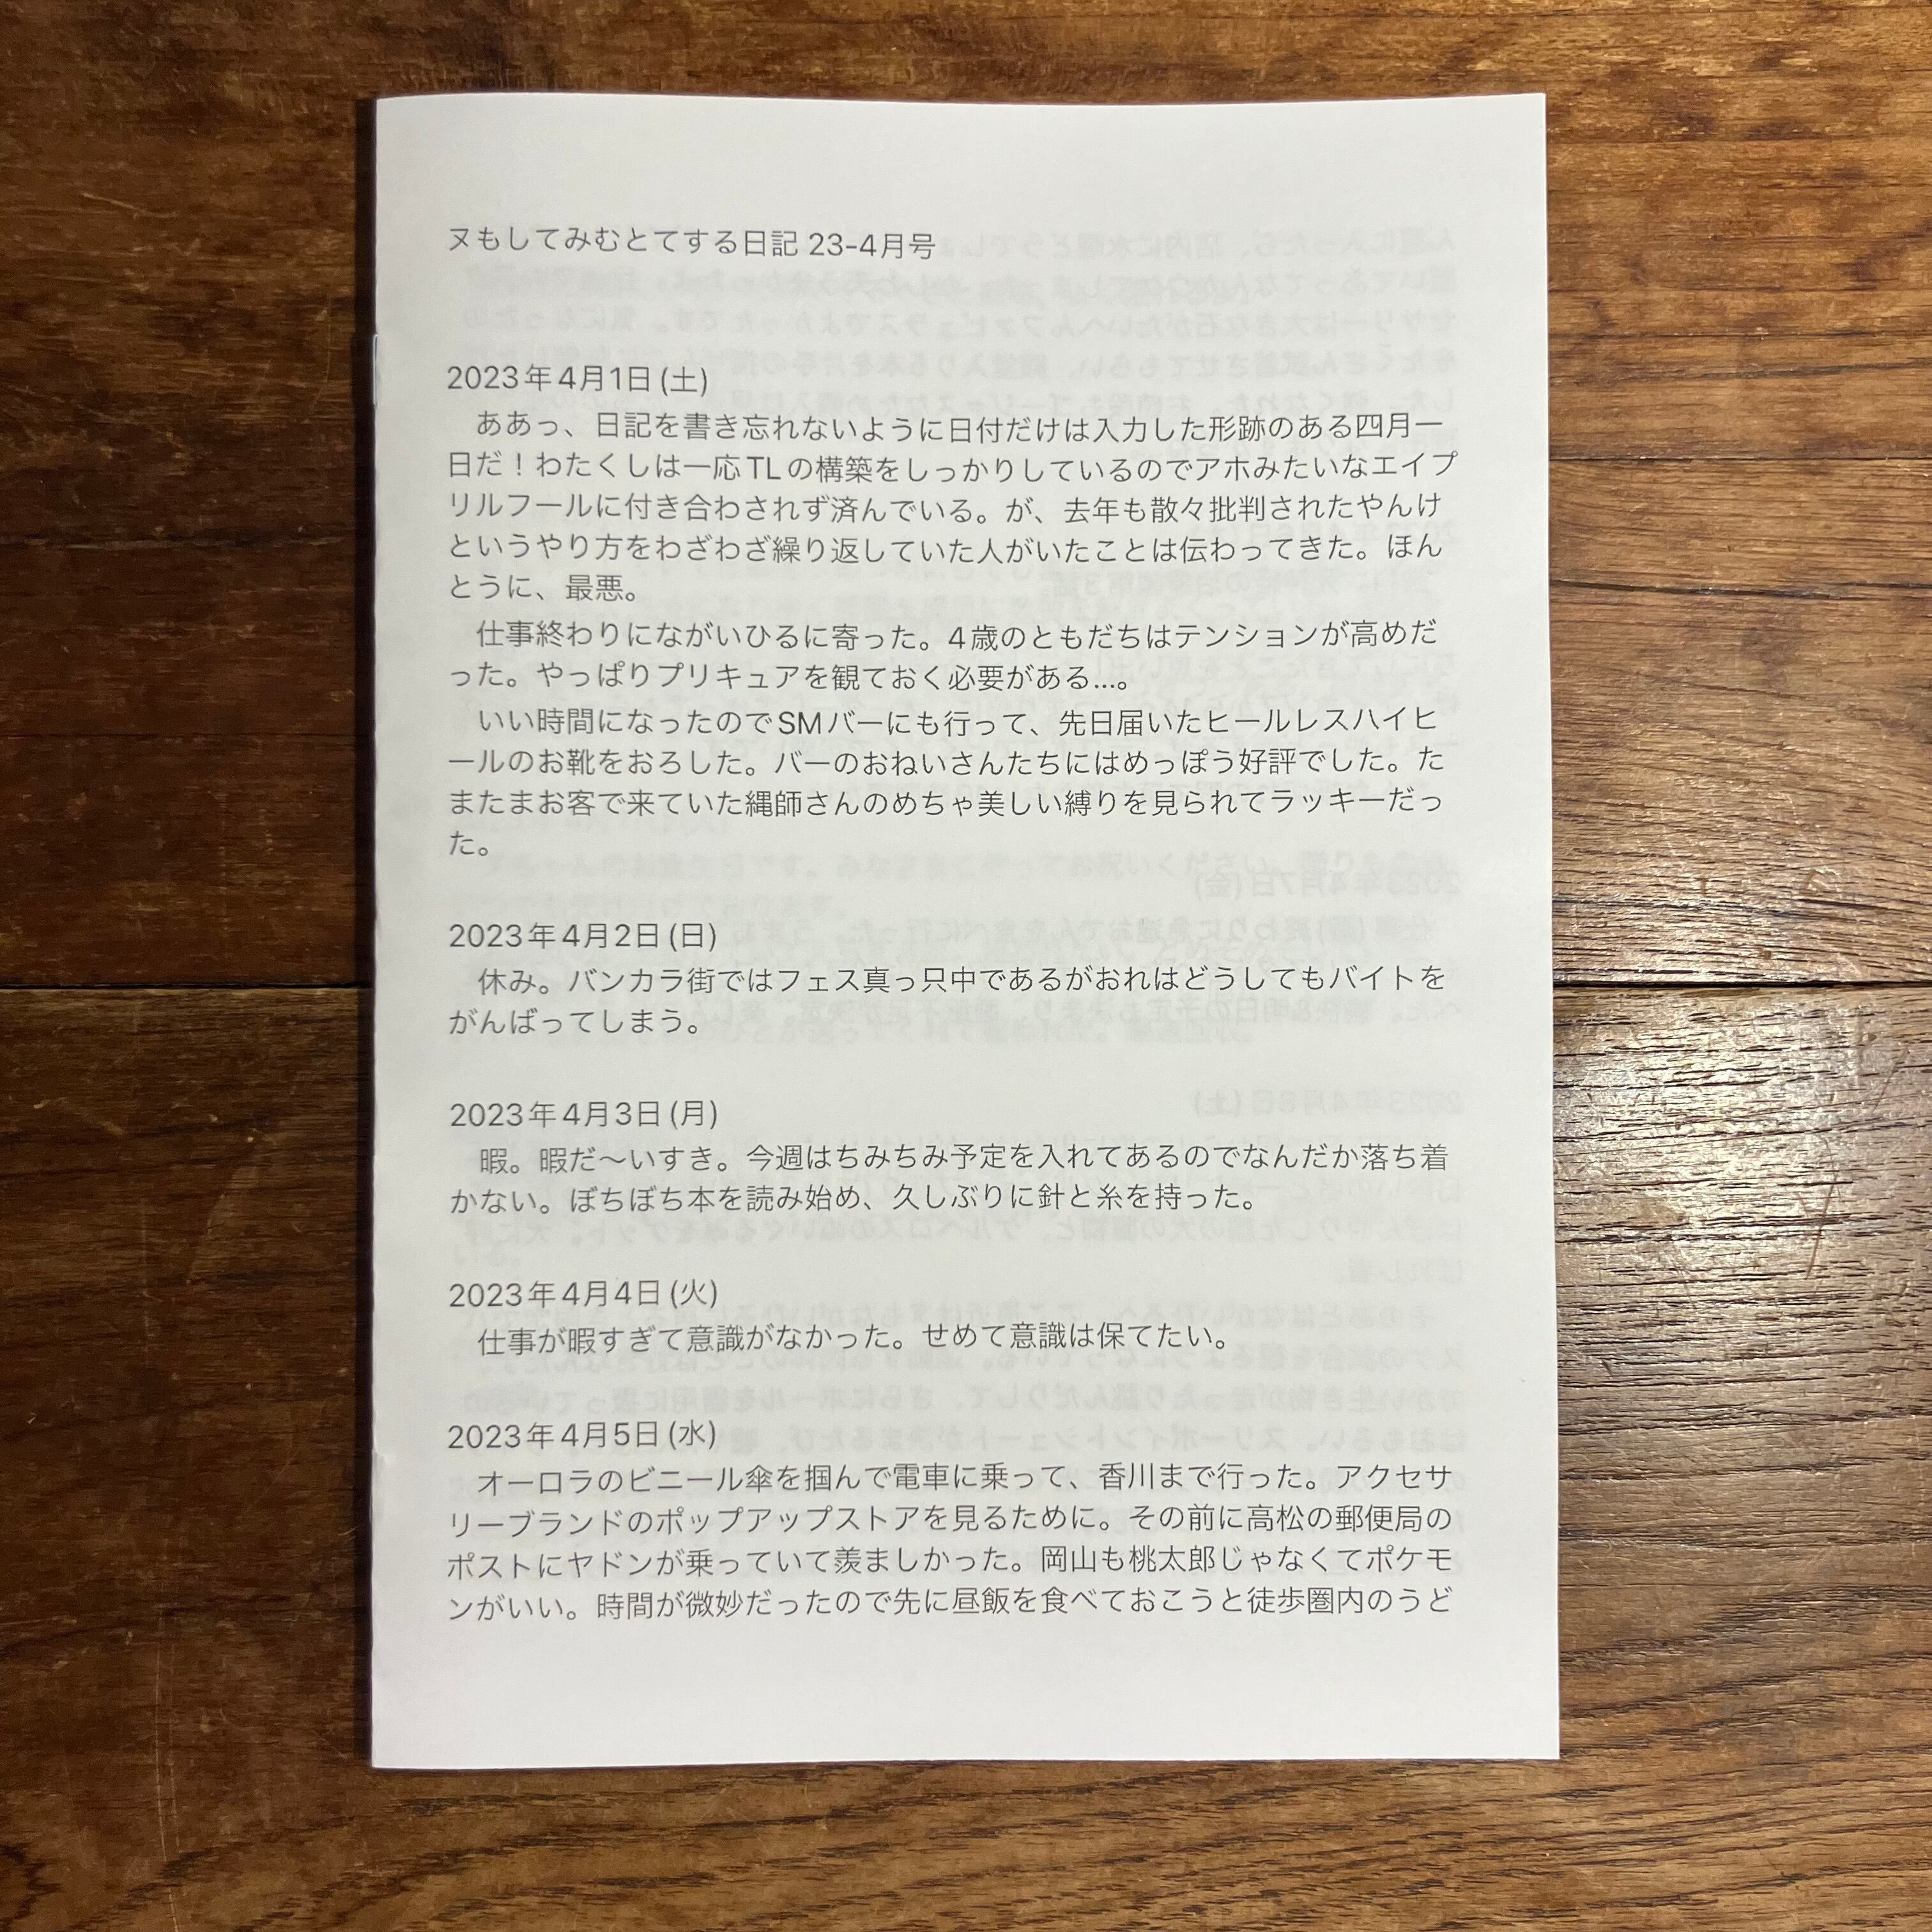 ヌもしてみむとてする日記 23-4月号
2023年4月1日(土)
ああっ、日記を書き忘れないように日付だけは入力した形跡のある四月一
日だ！わたくしは一応TLの構築をしっかりしているのでアホみたいなエイプ
リルフールに付き合わされず済んでいる。が、去年も散々批判されたやんけ
というやり方をわざわざ繰り返していた人がいたことは伝わってきた。ほん
とうに、最悪。
仕事終わりにながいひるに寄った。4歳のともだちはテンションが高めだ
った。やっぱりプリキュアを観ておく必要がある…。
いい時間になったのでSMバーにも行って、先日届いたヒールレスハイヒ
ールのお靴をおろした。バーのおねいさんたちにはめっぽう好評でした。た
またまお客で来ていた縄師さんのめちゃ美しい縛りを見られてラッキーだっ
た。
2023年4月2日(日)
休み。バンカラ街ではフェス真っ只中であるがおれはどうしてもバイトを
がんばってしまう。
2023年4月3日(月)
暇。暇だ〜いすき。今週はちみちみ予定を入れてあるのでなんだか落ち着
かない。ぼちぼち本を読み始め、久しぶりに針と糸を持った。
2023年4月4日(火)
仕事が暇すぎて意識がなかった。せめて意識は保てたい。
2023年4月5日(水)
オーロラのビニール傘を掴んで電車に乗って、香川まで行った。アクセサ
リーブランドのポップアップストアを見るために。その前に高松の郵便局の
ポストにヤドンが乗っていて羨ましかった。岡山も桃太郎じゃなくてポケモ
ンがいい。時間が微妙だったので先に昼飯を食べておこうと徒歩圏内のうど